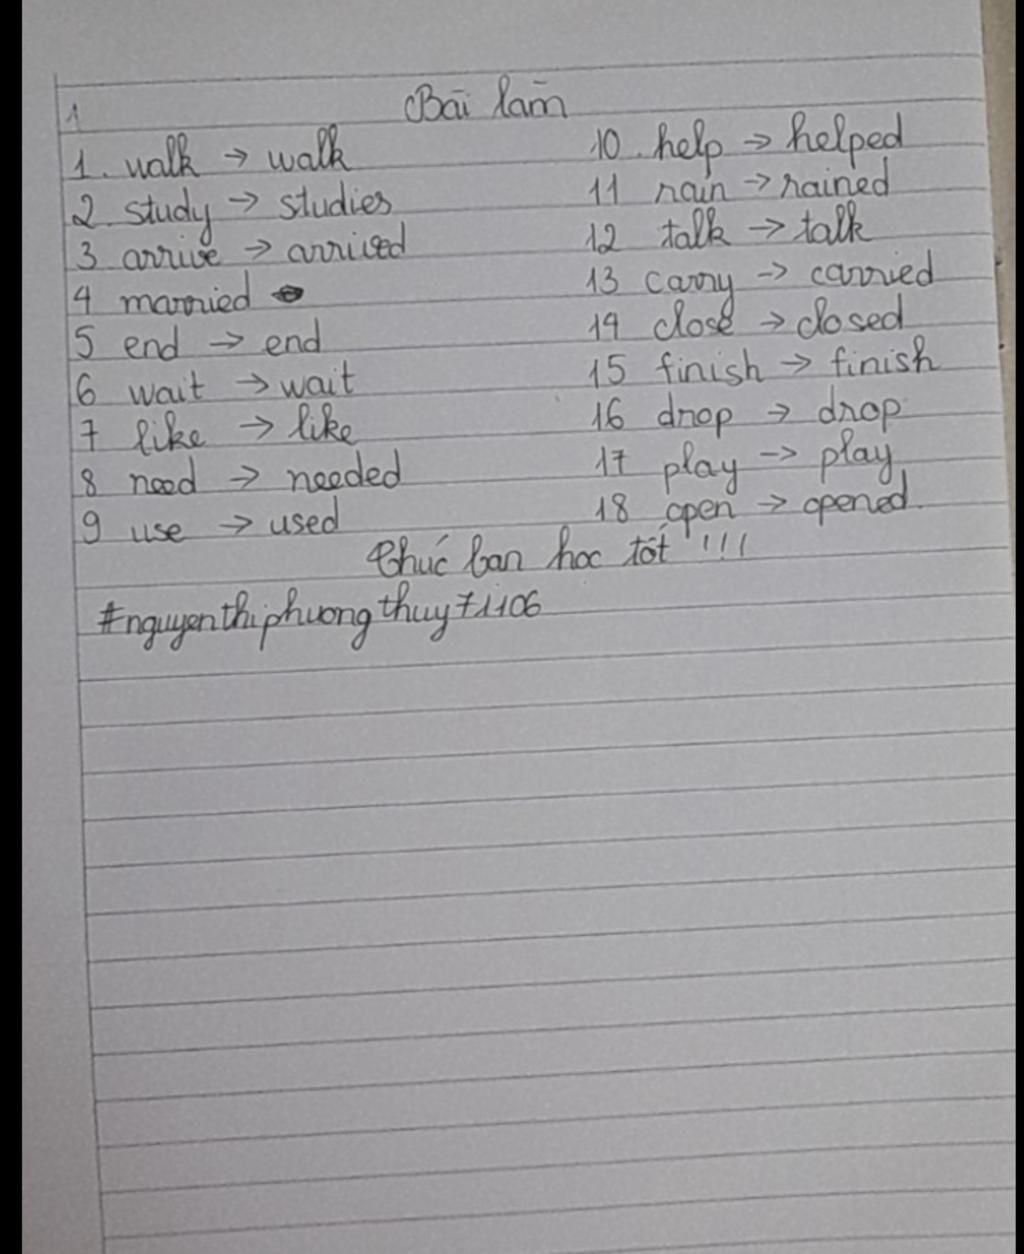 1
Bài làm
1. walk → walk
2 study → studies
3 arrive → arrived
4 married
5 end → end
6 wait → wait
7 like → like
8 need → needed
9 use → used
10. help → helped
11 rain → rained
12 talk → talk
13 carry → carried
14 close → closed
15 finish → finish
16 drop → drop
17 play → play
18 open → opened.
Chúc bạn học tốt !!!
#nguyenthiphuongthuy71106